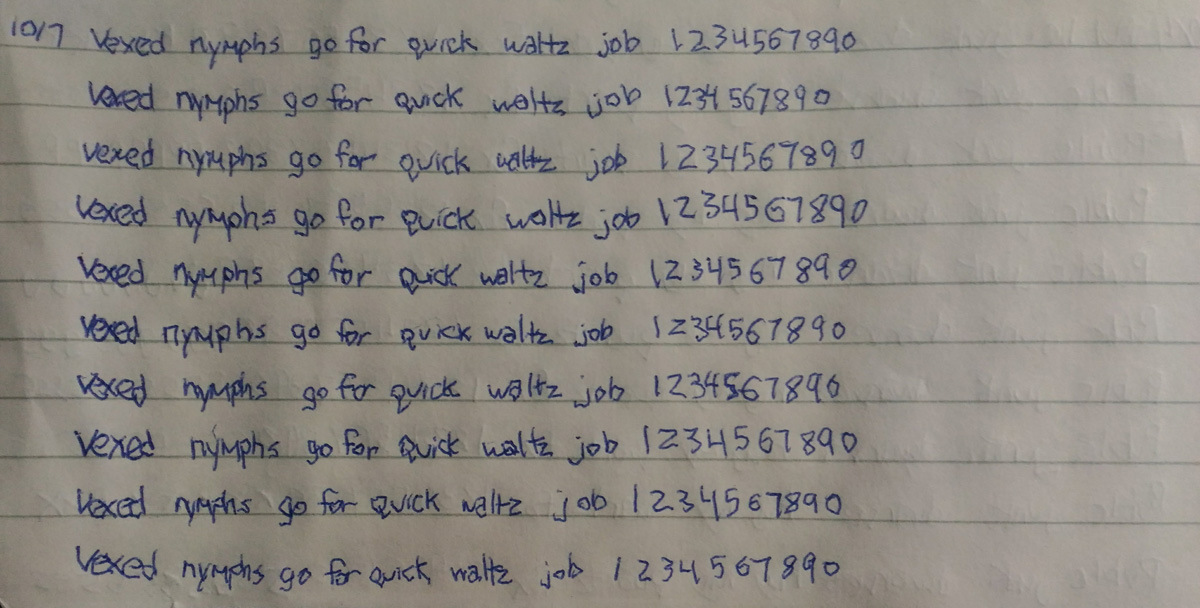 10/7 Vexed nymphs go for quick waltz job 1234567890
Vexed nymphs go for quick waltz job 1234567890
vexed nymphs go for quick waltz job 1234567890
Vexed nymphs go for quick waltz job 1234567890
Vexed nymphs go for quick waltz job 1234567890
Vexed nymphs go for quick waltz job 1234567890
Vexed nymphs go for quick waltz job 1234567890
Vexed nymphs go for quick waltz job 1234567890
Vexed nymphs go for quick waltz job 1234567890
Vexed nymphs go for quick waltz job 1234567890